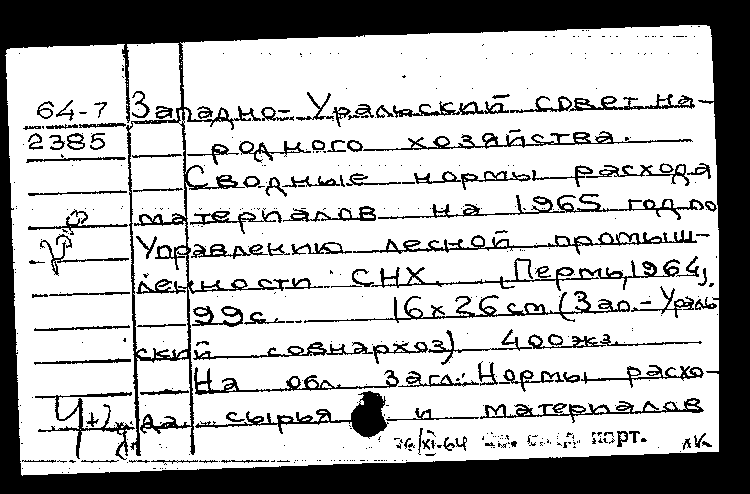 64-7 Западно-Уральский совет на-
2385 родного хозяйства.
Сводные нормы расхода
материалов на 1965 год по
Управлению лесной промыш-
ленности СНХ. [Пермь, 1964].
99с. 16х26 см. (Зап.-Ураль-
ский совнархоз). 400 экз.
На обл. загл.: Нормы расхо-
да сырья и материалов
XI-64 порт.